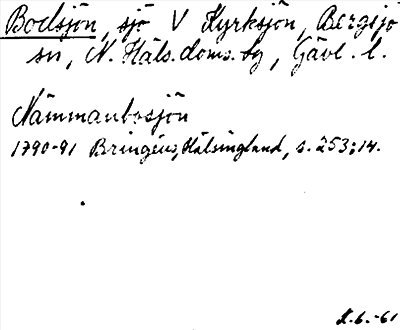 Bodsjön, sjö V Kyrksjön, Bergsjö
sn, N. Häls. doms. by, Gävl. l.
Nämmanbosjön
1790-91 Bringéus, Hälsingland, s. 253; 14.
-61